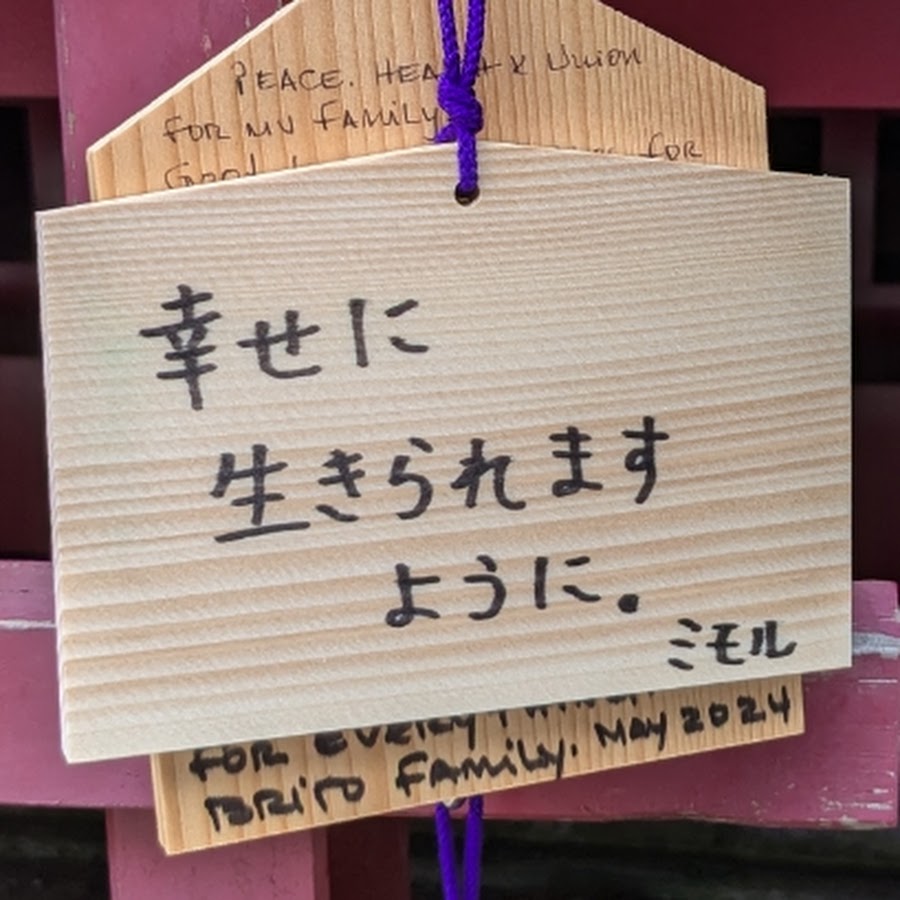 PEACE. HEALTH & Union
FOR MY FAMILY
Good FOR
幸せに
生きられます
ように.
ミモル
FOR EVERY
BRITO FAMILY. MAY 2024